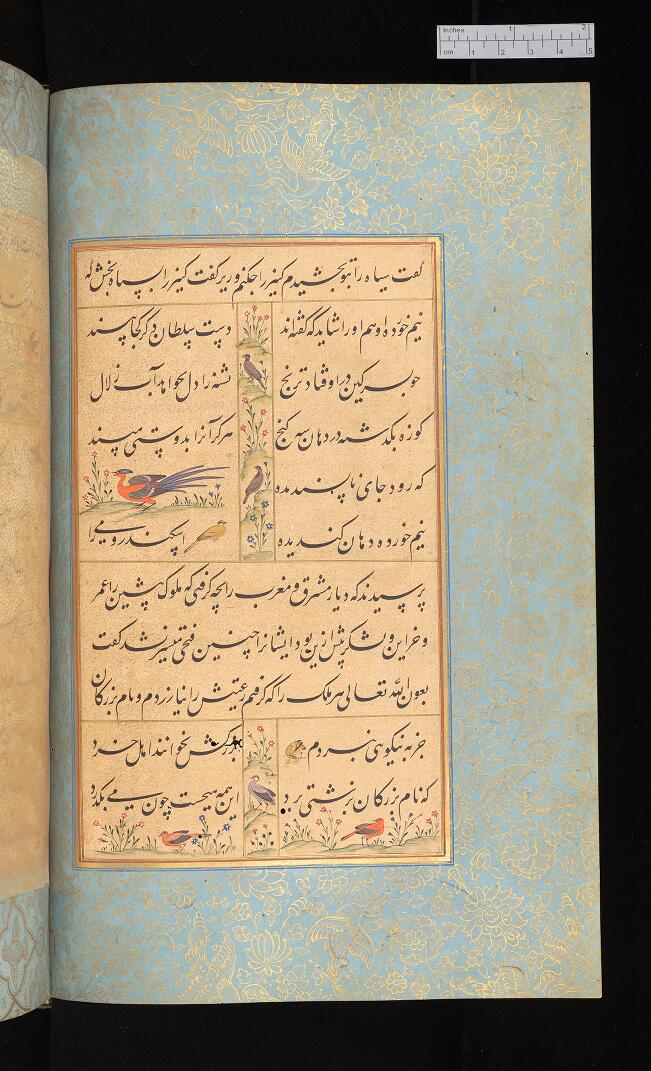 Inches 1 2
cm 1 2 3 4 5
گفت سیاه را بتو بخشیدم کنیز را چکنم وزیر گفت کنیز را بسیاه بخش که
نیم خورده او هم او را شاید که گفته‌اند
دست سلطان دگر کجا بیند
چو بسرکین در اوفتاد ترنج
تشنه را دل نخواهد آب زلال
کوزه بگذشته در دهان سه کنج
هرگز آنرا بدوستی مپسند
که رود جای ناپسندیده
نیم خورده دهان کندیده
اسکندر رومی را
پرسیدند که دیار مشرق و مغرب را بچه گرفتی که ملوک پیشین را عمر
و خزاین و لشکر پیش ازین بود ایشانرا چنین فتحی میسر نشد گفت
بعون الله تعالی هر ملک را که گرفتم رعیتش را نیازردم و نام بزرگان
جز به نیکویی نبردم
بزرگش نخوانند اهل خرد
که نام بزرگان بزشتی برد
این همه هیچست چون می بگذرد